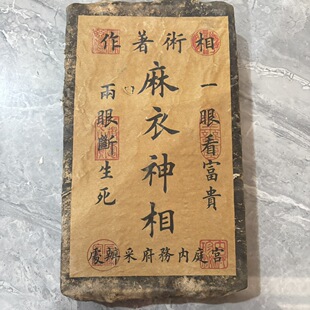 相術著作
一眼看富貴
麻衣神相
兩眼斷生死
宮庭内務府采辦處